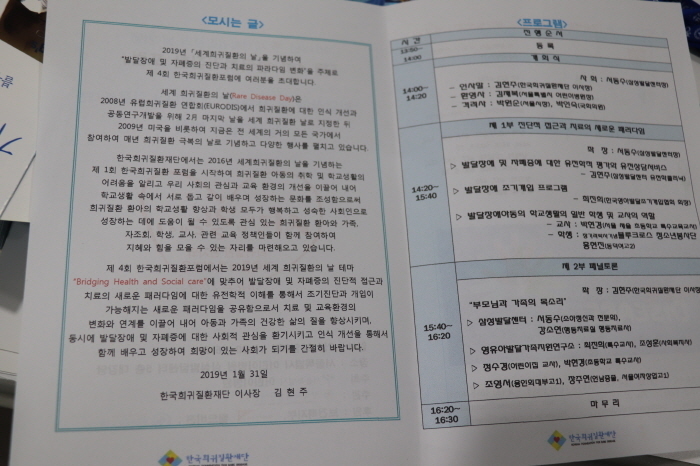 <모시는 글>
2019년 「세계희귀질환의 날」을 기념하여
"발달장애 및 자폐증의 진단과 치료의 파라다임 변화"을 주제로
제 4회 한국희귀질환포럼에 여러분을 초대합니다.
세계 희귀질환의 날(Rare Disease Day)은
2008년 유럽희귀질환 연합회(EURODIS)에서 희귀질환에 대한 인식 개선과
공동연구개발을 위해 2월 마지막 날을 세계 희귀질환 날로 지정한 뒤
2009년 미국을 비롯하여 지금은 전 세계의 거의 모든 국가에서
참여하여 매년 희귀질환 극복의 날로 기념하고 다양한 행사를 펼치고 있습니다.
한국희귀질환재단에서는 2016년 세계희귀질환의 날을 기념하는
제 1회 한국희귀질환 포럼을 시작하여 희귀질환 아동의 취학 및 학교생활의
어려움을 알리고 우리 사회의 관심과 교육 환경의 개선을 이끌어 내어
학교생활 속에서 서로 돕고 같이 배우며 성장하는 문화를 조성함으로써
희귀질환 환아의 학교생활 향상과 학생 모두가 행복하고 성숙한 사회인으로
성장하는 데에 도움이 될 수 있도록 관심 있는 희귀질환 환아와 가족,
자조회, 학생, 교사, 관련 교육 정책인들이 함께 참여하여
지혜와 힘을 모을 수 있는 자리를 마련해오고 있습니다.
제 4회 한국희귀질환포럼에서는 2019년 세계 희귀질환의 날 테마
"Bridging Health and Social care"에 맞추어 발달장애 및 자폐증의 진단적 접근과
치료의 새로운 패러다임에 대한 유전학적 이해를 통해서 조기진단과 개입이
가능해지는 새로운 패러다임을 공유함으로서 치료 및 교육환경의
변화와 연계를 이끌어 내어 아동과 가족의 건강한 삶의 질을 향상시키며,
동시에 발달장애 및 자폐증에 대한 사회적 관심을 환기시키고 인식 개선을 통해서
함께 배우고 성장하며 희망이 있는 사회가 되기를 간절히 바랍니다.
2019년 1월 31일
한국희귀질환재단 이사장 김 현 주
한국희귀질환재단
<프로그램>
시 간
진 행 순 서
13:50~
14:00
등 록
개 회 식
14:00~
14:20
사 회 : 서동수(삼성발달센터장)
- 인사말 : 김현주(한국희귀질환재단 이사장)
- 환영사 : 김재복(서울특별시 어린이병원장)
- 격려사 : 박원순(서울시장), 박인숙(국회의원)
제 1부 진단적 접근과 치료의 새로운 패러다임
14:20~
15:40
좌 장 : 서동수(삼성발달센터장)
▷ 발달장애 및 자폐증에 대한 유전학적 평가와 유전상담서비스
▷ 발달장애 조기개입 프로그램
▷ 발달장애아동의 학교생활의 일반 학생 및 교사의 역할
제 2부 패널토론
15:40~
16:20
좌 장 : 김현주(한국희귀질환재단 이사장)
"부모님과 가족의 목소리"
▷ 삼성발달센터 : 서동수(소아정신과 전문의),
강소연(행동치료실 행동치료사)
▷ 영유아발달가족지원연구소 : 최진희(특수교사), 조성문(사회복지사)
▷ 정수경(어린이집 교사), 박현경(초등학교 특수교사)
16:20~
16:30
마 무 리
한국희귀질환재단